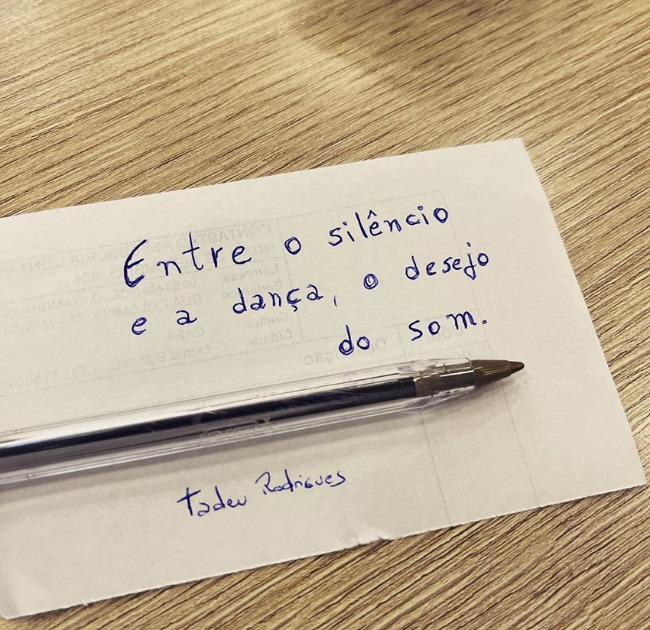 Entre o silêncio
e a dança, o desejo
do som.
Tadeu Rodrigues